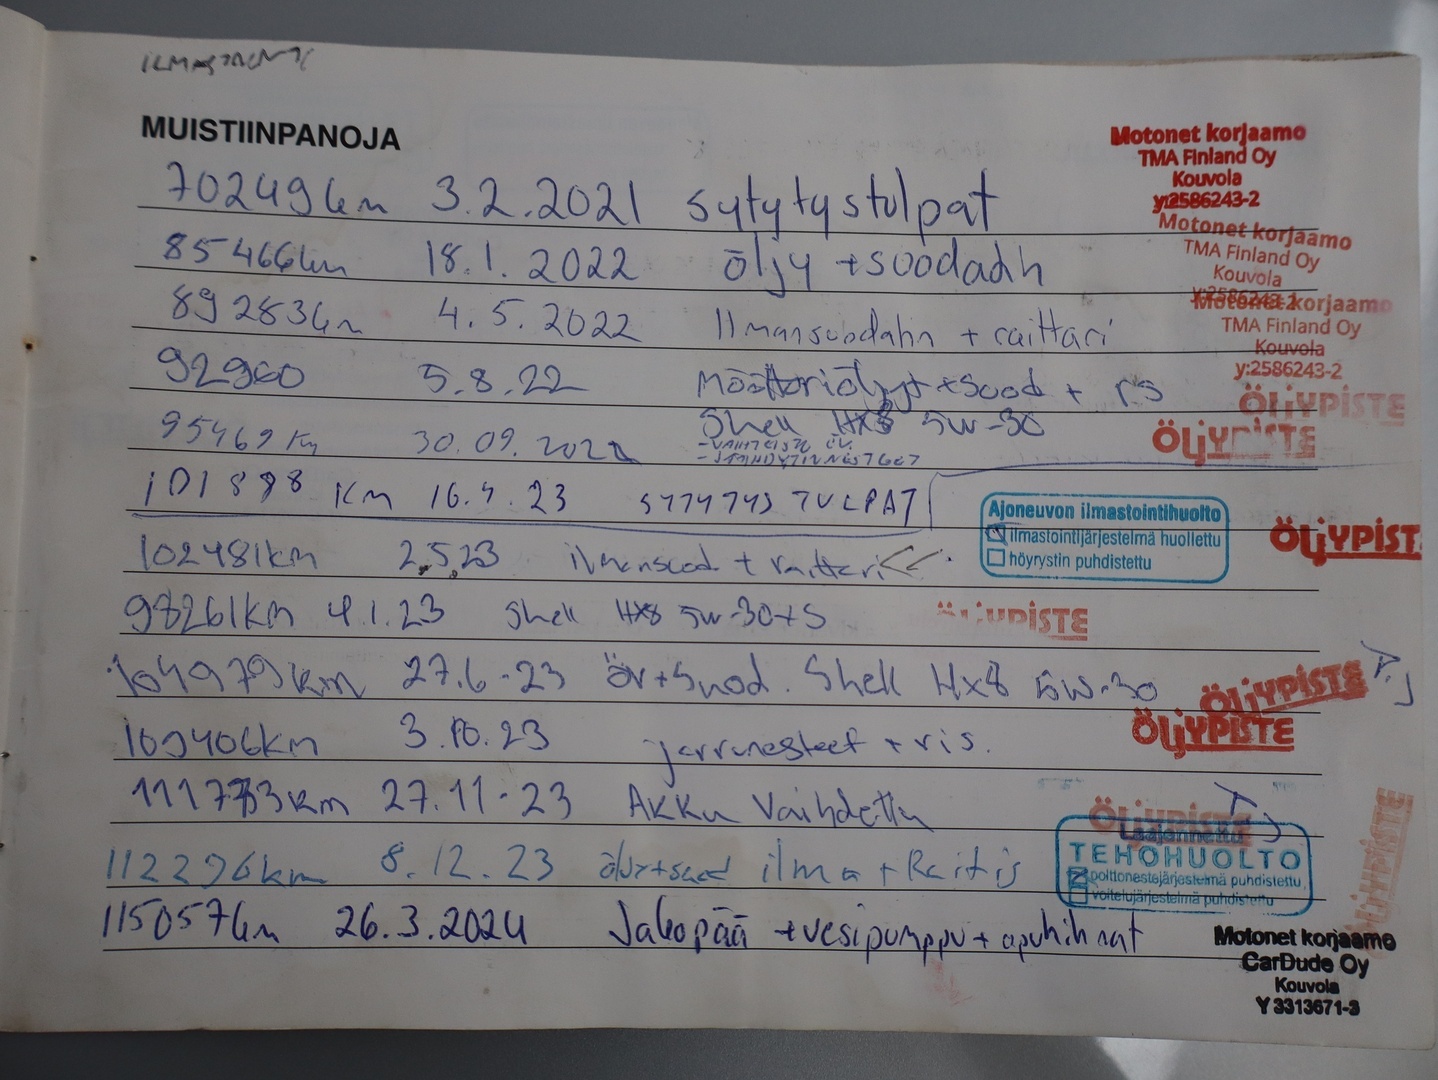 MUISTIINPANOJA
70249km 3.2.2021 sytytystulpat
Motonet korjaamo
TMA Finland Oy
Kouvola
y:2586243-2
85466km 18.1.2022 öljy +suodadh
Motonet korjaamo
TMA Finland Oy
Kouvola
y:2586243-2
89283km 4.5.2022 Ilmansuodahn + raittari
Motonet korjaamo
TMA Finland Oy
Kouvola
y:2586243-2
92960 5.8.22 Moottoriöljyt +suod + rs
ÖLJYPISTE
95469 Km 30.09.2022 Shell HX8 5W-30
ÖLJYPISTE
101898 Km 16.4.23 SYTYTYS TULPAT
Ajoneuvon ilmastointihuolto
ilmastointijärjestelmä huollettu
höyrystin puhdistettu
ÖLJYPIST
102481km 2.5.23 ilmansuod + raittari
98261km 4.1.23 Shell HX8 5W-30+S
ÖLJYPISTE
104979km 27.6-23 öv+Suod. Shell HX8 5W-30
ÖLJYPISTE
109406km 3.10.23 jarrunesteet + ris.
ÖLJYPISTE
111773km 27.11-23 Akku Vaihdettu
ÖLJYPISTE
112296km 8.12.23 ilma + Raitis
Laajennettu
TEHOHUOLTO
polttonestejärjestelmä puhdistettu
voitelujärjestelmä puhdistettu
ÖLJYPISTE
115057km 26.3.2024 Jakopää +vesipumppu + apuhihnat
Motonet korjaamo
CarDude Oy
Kouvola
Y 3313671-3